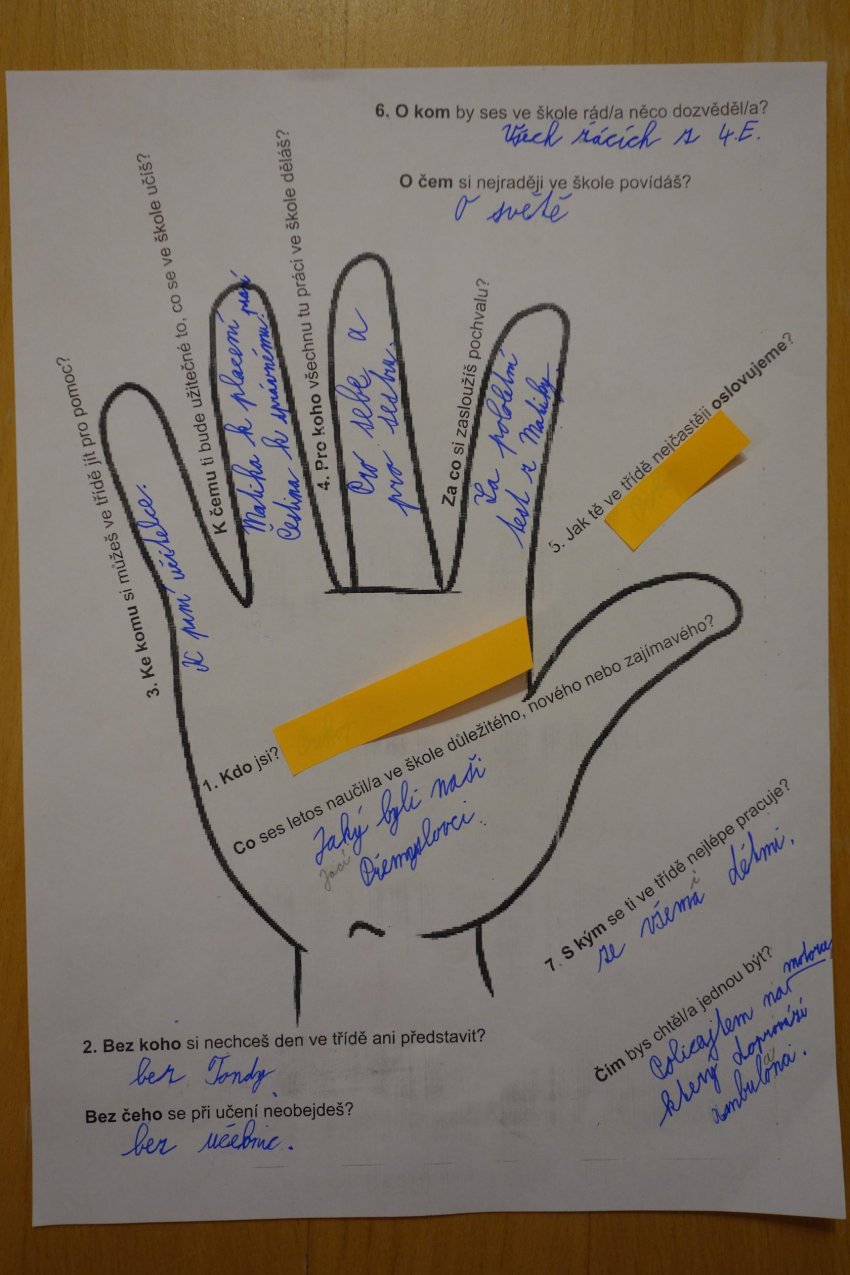 6. O kom by ses ve škole rád/a něco dozvěděl/a?
Všech žácích z 4.E.
O čem si nejraději ve škole povídáš?
O světě
3. Ke komu si můžeš ve třídě jít pro pomoc?
K paní učitelce.
K čemu ti bude užitečné to, co se ve škole učíš?
Matika k placení
Čeština k správnému psaní
4. Pro koho všechnu tu práci ve škole děláš?
Pro sebe a
pro sestru.
Za co si zasloužíš pochvalu?
Za pololetní
test z Matiky
5. Jak tě ve třídě nejčastěji oslovujeme?
1. Kdo jsi?
Co ses letos naučil/a ve škole důležitého, nového nebo zajímavého?
Jaký byli naši
Jací
Přemyslovci.
7. S kým se ti ve třídě nejlépe pracuje?
se všema dětmi.
i
Čím bys chtěl/a jednou být?
Policajtem na motorce
který doprovází
ambulonci.
a
2. Bez koho si nechceš den ve třídě ani představit?
bez Tondy
Bez čeho se při učení neobejdeš?
bez učebnic.